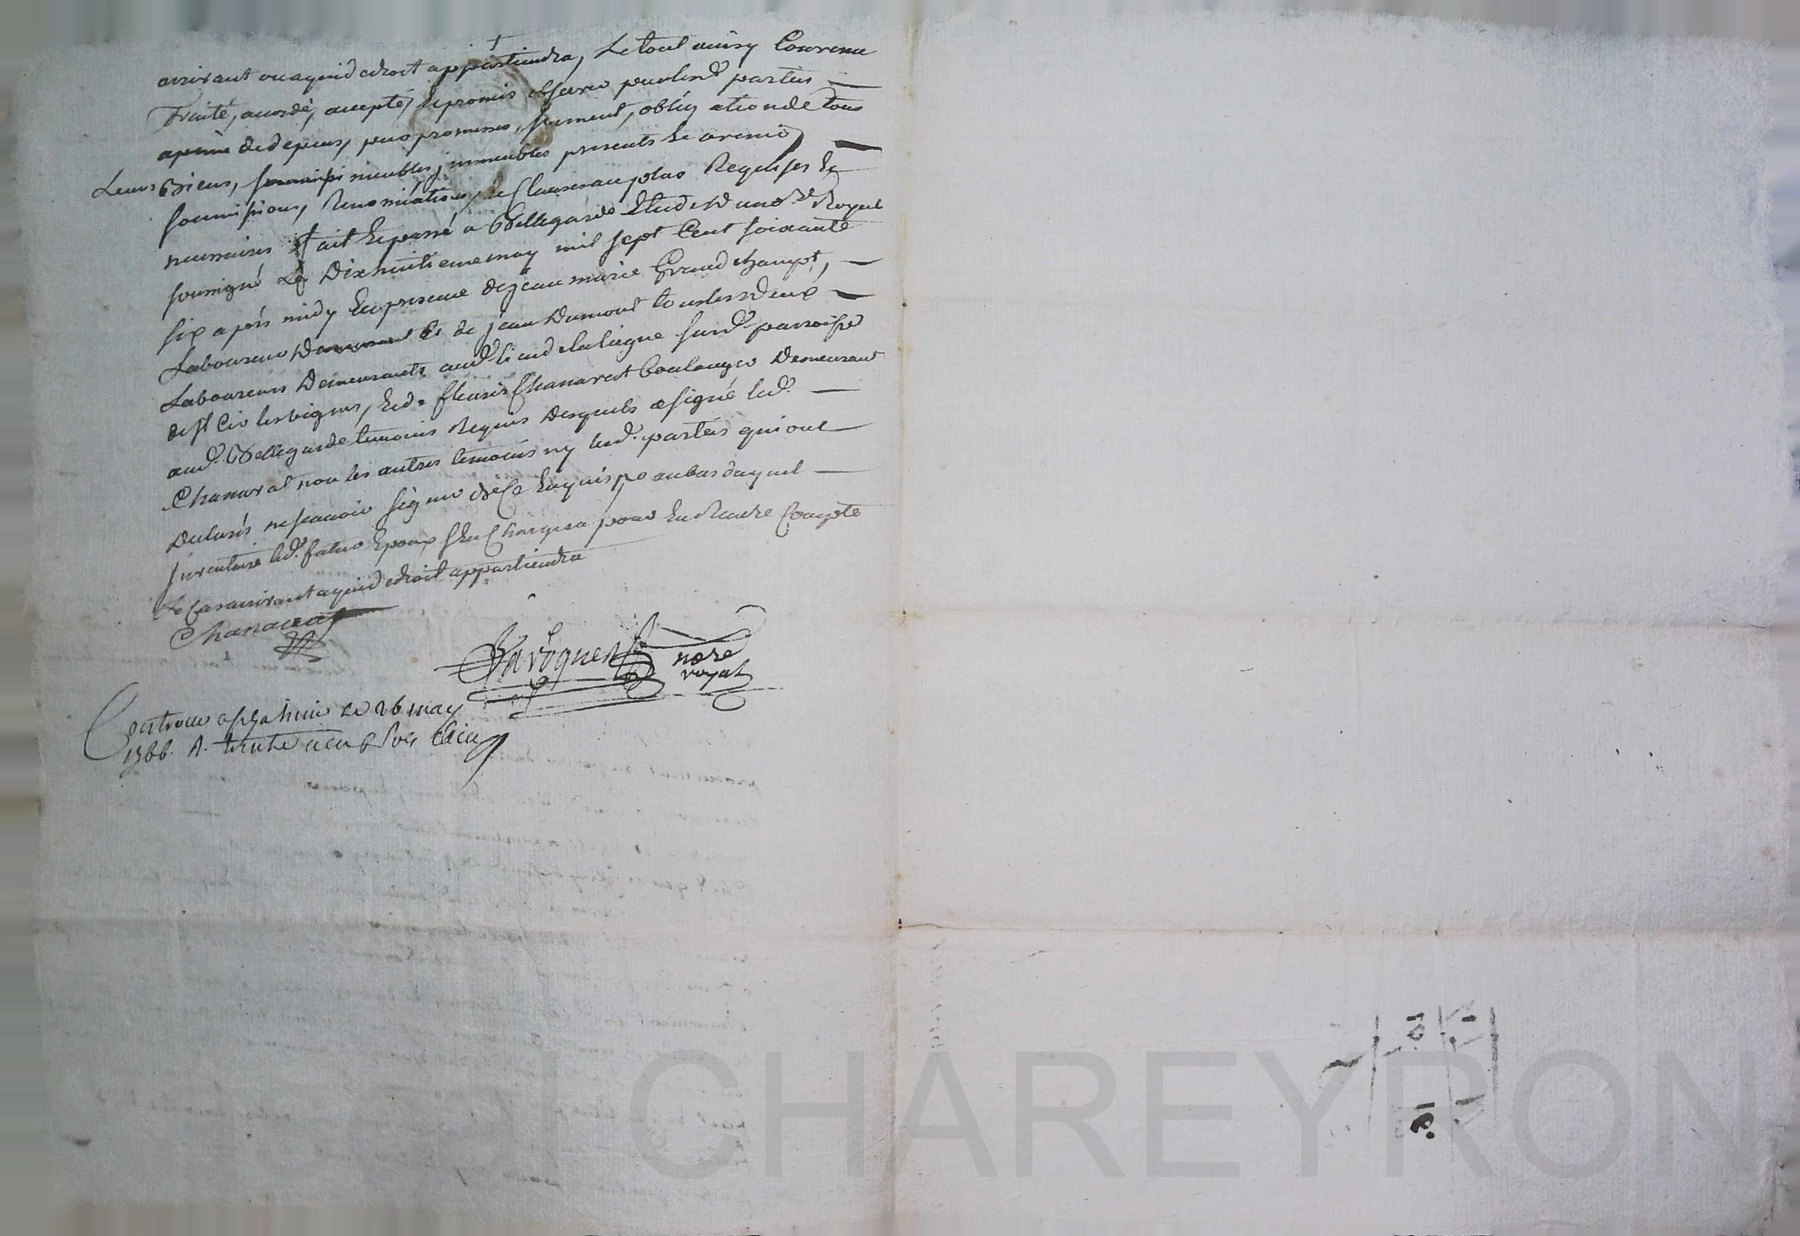 arrivant ou a qui de droit appartiendra, Le tout ainsy Convenu
Traité, accordé, accepté, Et promis observer par lesd. parties
a peine de depens, par promesses, serment, obligation de tous
Leurs Biens, meubles, immeubles presents Et avenir
soumissions, Renonciations, Et Clauses au plus Requises Et
necessaires fait Et passé a Bellegarde Etude du no.re Royal
soussigné Le Dixhuitieme may mil sept Cent soixante
six apres midy En presence de jean marie Grandchampt,
Laboureur Et de jean Dumont tous les Deux
Laboureurs Demeurants aud. lieu de la sur d. parroisse
de st Cir les vignes, Et de fleuris Chanavat boulanger Demeurant
aud. Bellegarde temoins Requis Desquels a signé led.
Chanavat non les autres temoins ny lesd. parties qui ont
Declarés ne scavoir signer De Ce Enquis au bas duquel
inventaire led. futur Epoux s'En Chargera pour En Rendre Compte
Le Cas arrivant a qui de droit appartiendra
Chanavat
noere
royal
Controllé le 26 may
1766. R. trente neuf sols
CHAREYRON